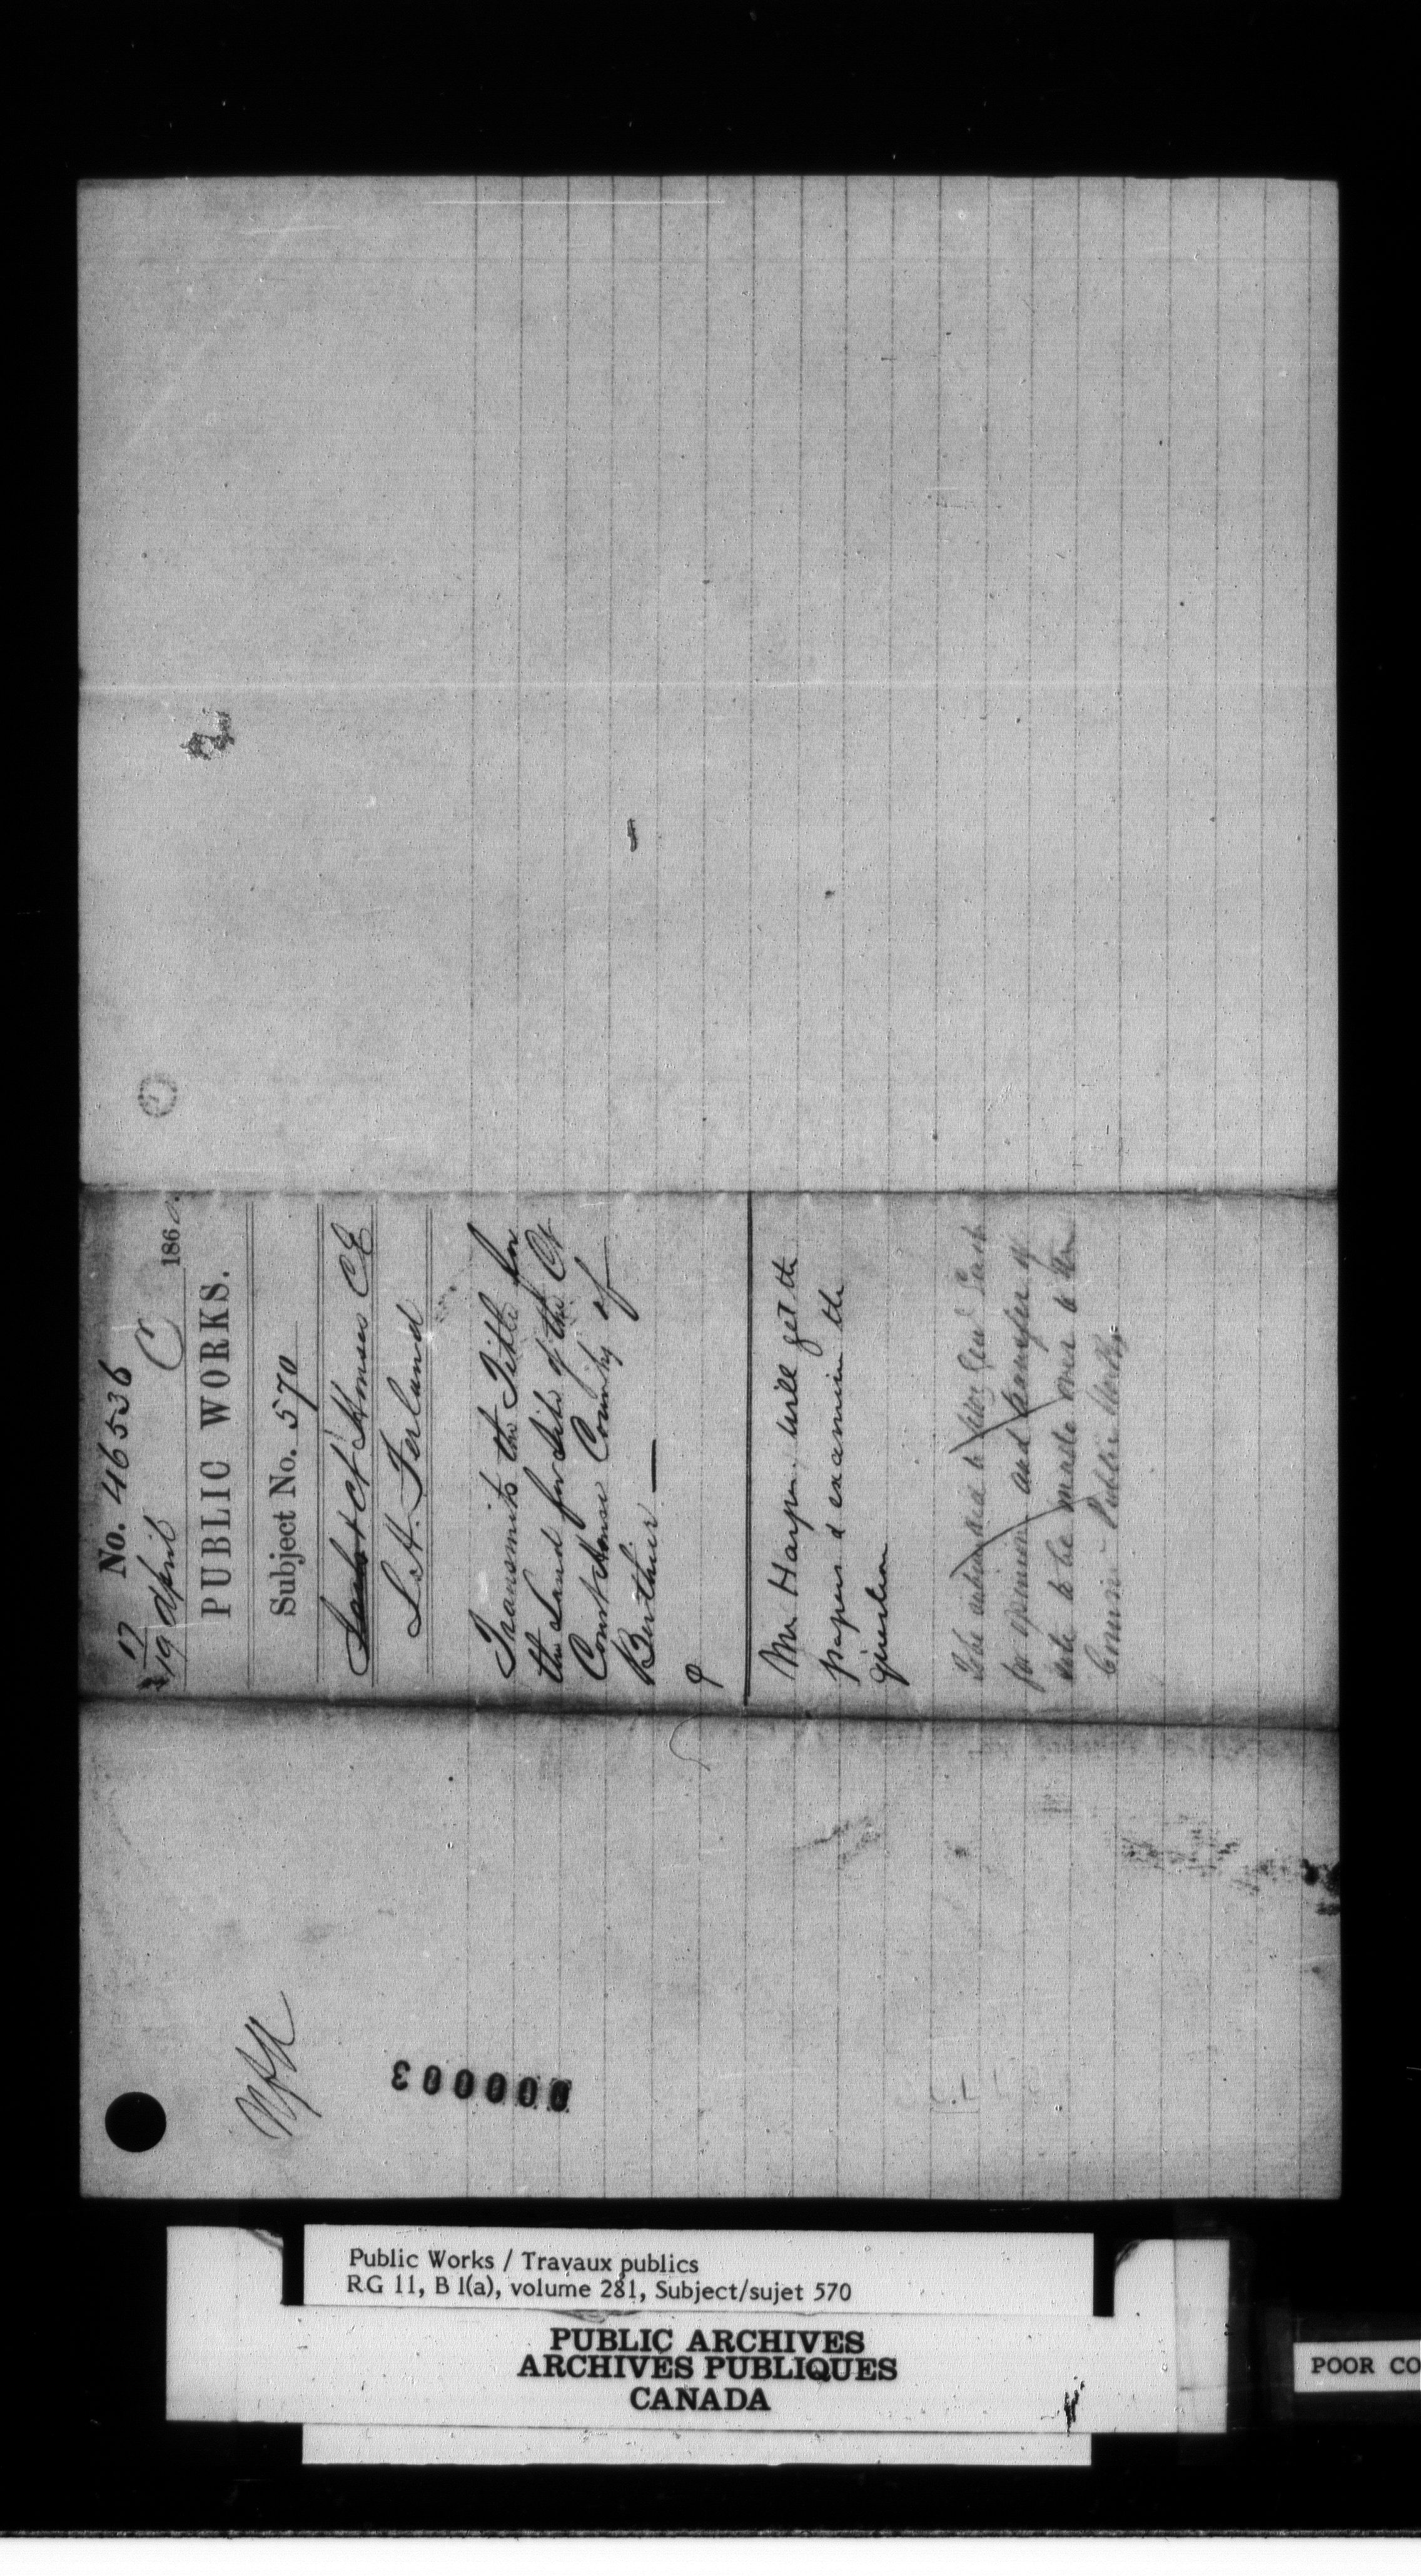 No. 46536
17
19 April 1860.
PUBLIC WORKS.
Subject No. 570
Ct Houses CE
L. H. Ferland
Transmits the Title for
the Land for Site of the Ct
Court House County of
Berthier —
Mr Harper, will get the
papers & examine the
question
To be submitted to Sol. Gen. East
for opinion and transfer of
to be made over to the
Comm. Public Works
000003
Public Works / Travaux publics
RG 11, B 1(a), volume 281, Subject/sujet 570
PUBLIC ARCHIVES
ARCHIVES PUBLIQUES
CANADA
POOR CO